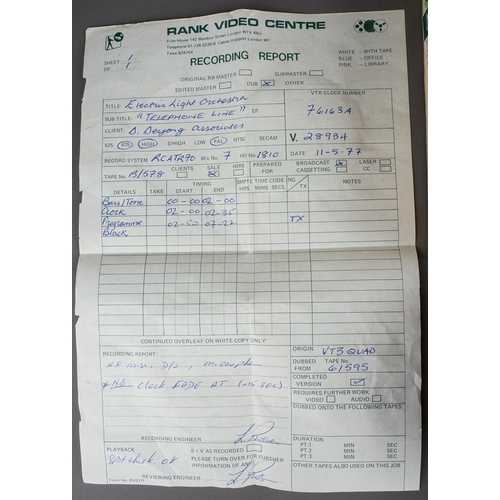 RANK VIDEO CENTRE
Film House 142 Wardour Street London W1V 4BU
SHEET 1
OF 1
RECORDING REPORT
WHITE - WITH TAPE
BLUE - OFFICE
PINK - LIBRARY
ORIGINAL/RX MASTER
SUBMASTER
EDITED MASTER
DUB X
OTHER
TITLE Electric Light Orchestra
VTR CLOCK NUMBER
SUB TITLE "TELEPHONE LINE" EP.
76163A
CLIENT D. Deyong Associates
V. 28934
525 625 HIGH LOW PAL NTSC SECAM
DATE 11-5-77
RECORD SYSTEM RCATR70 M/c No 7 H.O No 1810
PREPARED FOR
BROADCAST X LASER
CASSETTING CC
TAPE No. B/578
CLIENTS SALE X HIRE
DETAILS TAKE
TIMING
START END
SMPTE TIME CODE
HRS MINS SECS
RX TX
NOTES
Bars/Tone 00-00 02-00
Clock 02-00 02-35
Programme 02-30 07-22 TX
Black
CONTINUED OVERLEAF ON WHITE COPY ONLY
RECORDING REPORT:
H.F. noise, D/O,
* No Clock FADE AT
ORIGIN VT3 QUAD
DUBBED FROM TAPE No. 61595
COMPLETED VERSION
REQUIRES FURTHER WORK
VIDEO AUDIO
DUBBED ONTO THE FOLLOWING TAPES
RECORDING ENGINEER
PLAYBACK
Spot check ok
S + V AS RECORDED
PLEASE TURN OVER FOR FURTHER
INFORMATION (IF ANY)
REVIEWING ENGINEER
DURATION
PT.1 MIN SEC
PT.2 MIN SEC
PT.3 MIN SEC
OTHER TAPES ALSO USED ON THIS JOB